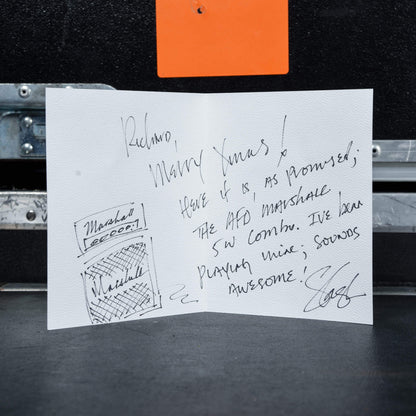 Richard,
Merry Xmas!
Here it is, as promised;
The AFD Marshall
5W Combo. I've been
playing mine; sounds
awesome!
Slash
Marshall
Marshall